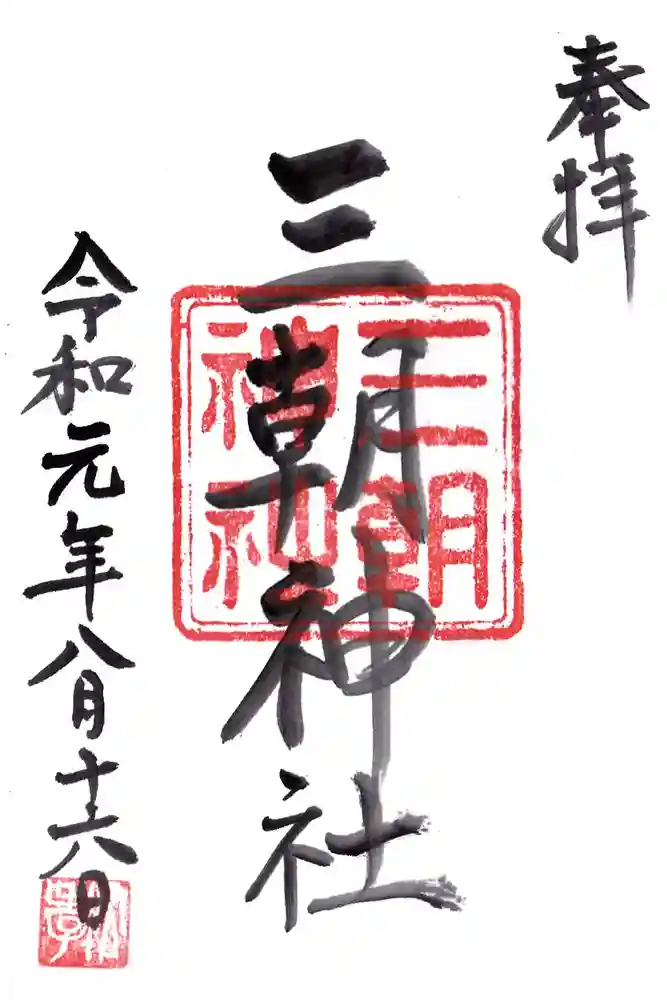 奉拝
三朝神社
三朝神社
令和元年八月十六日